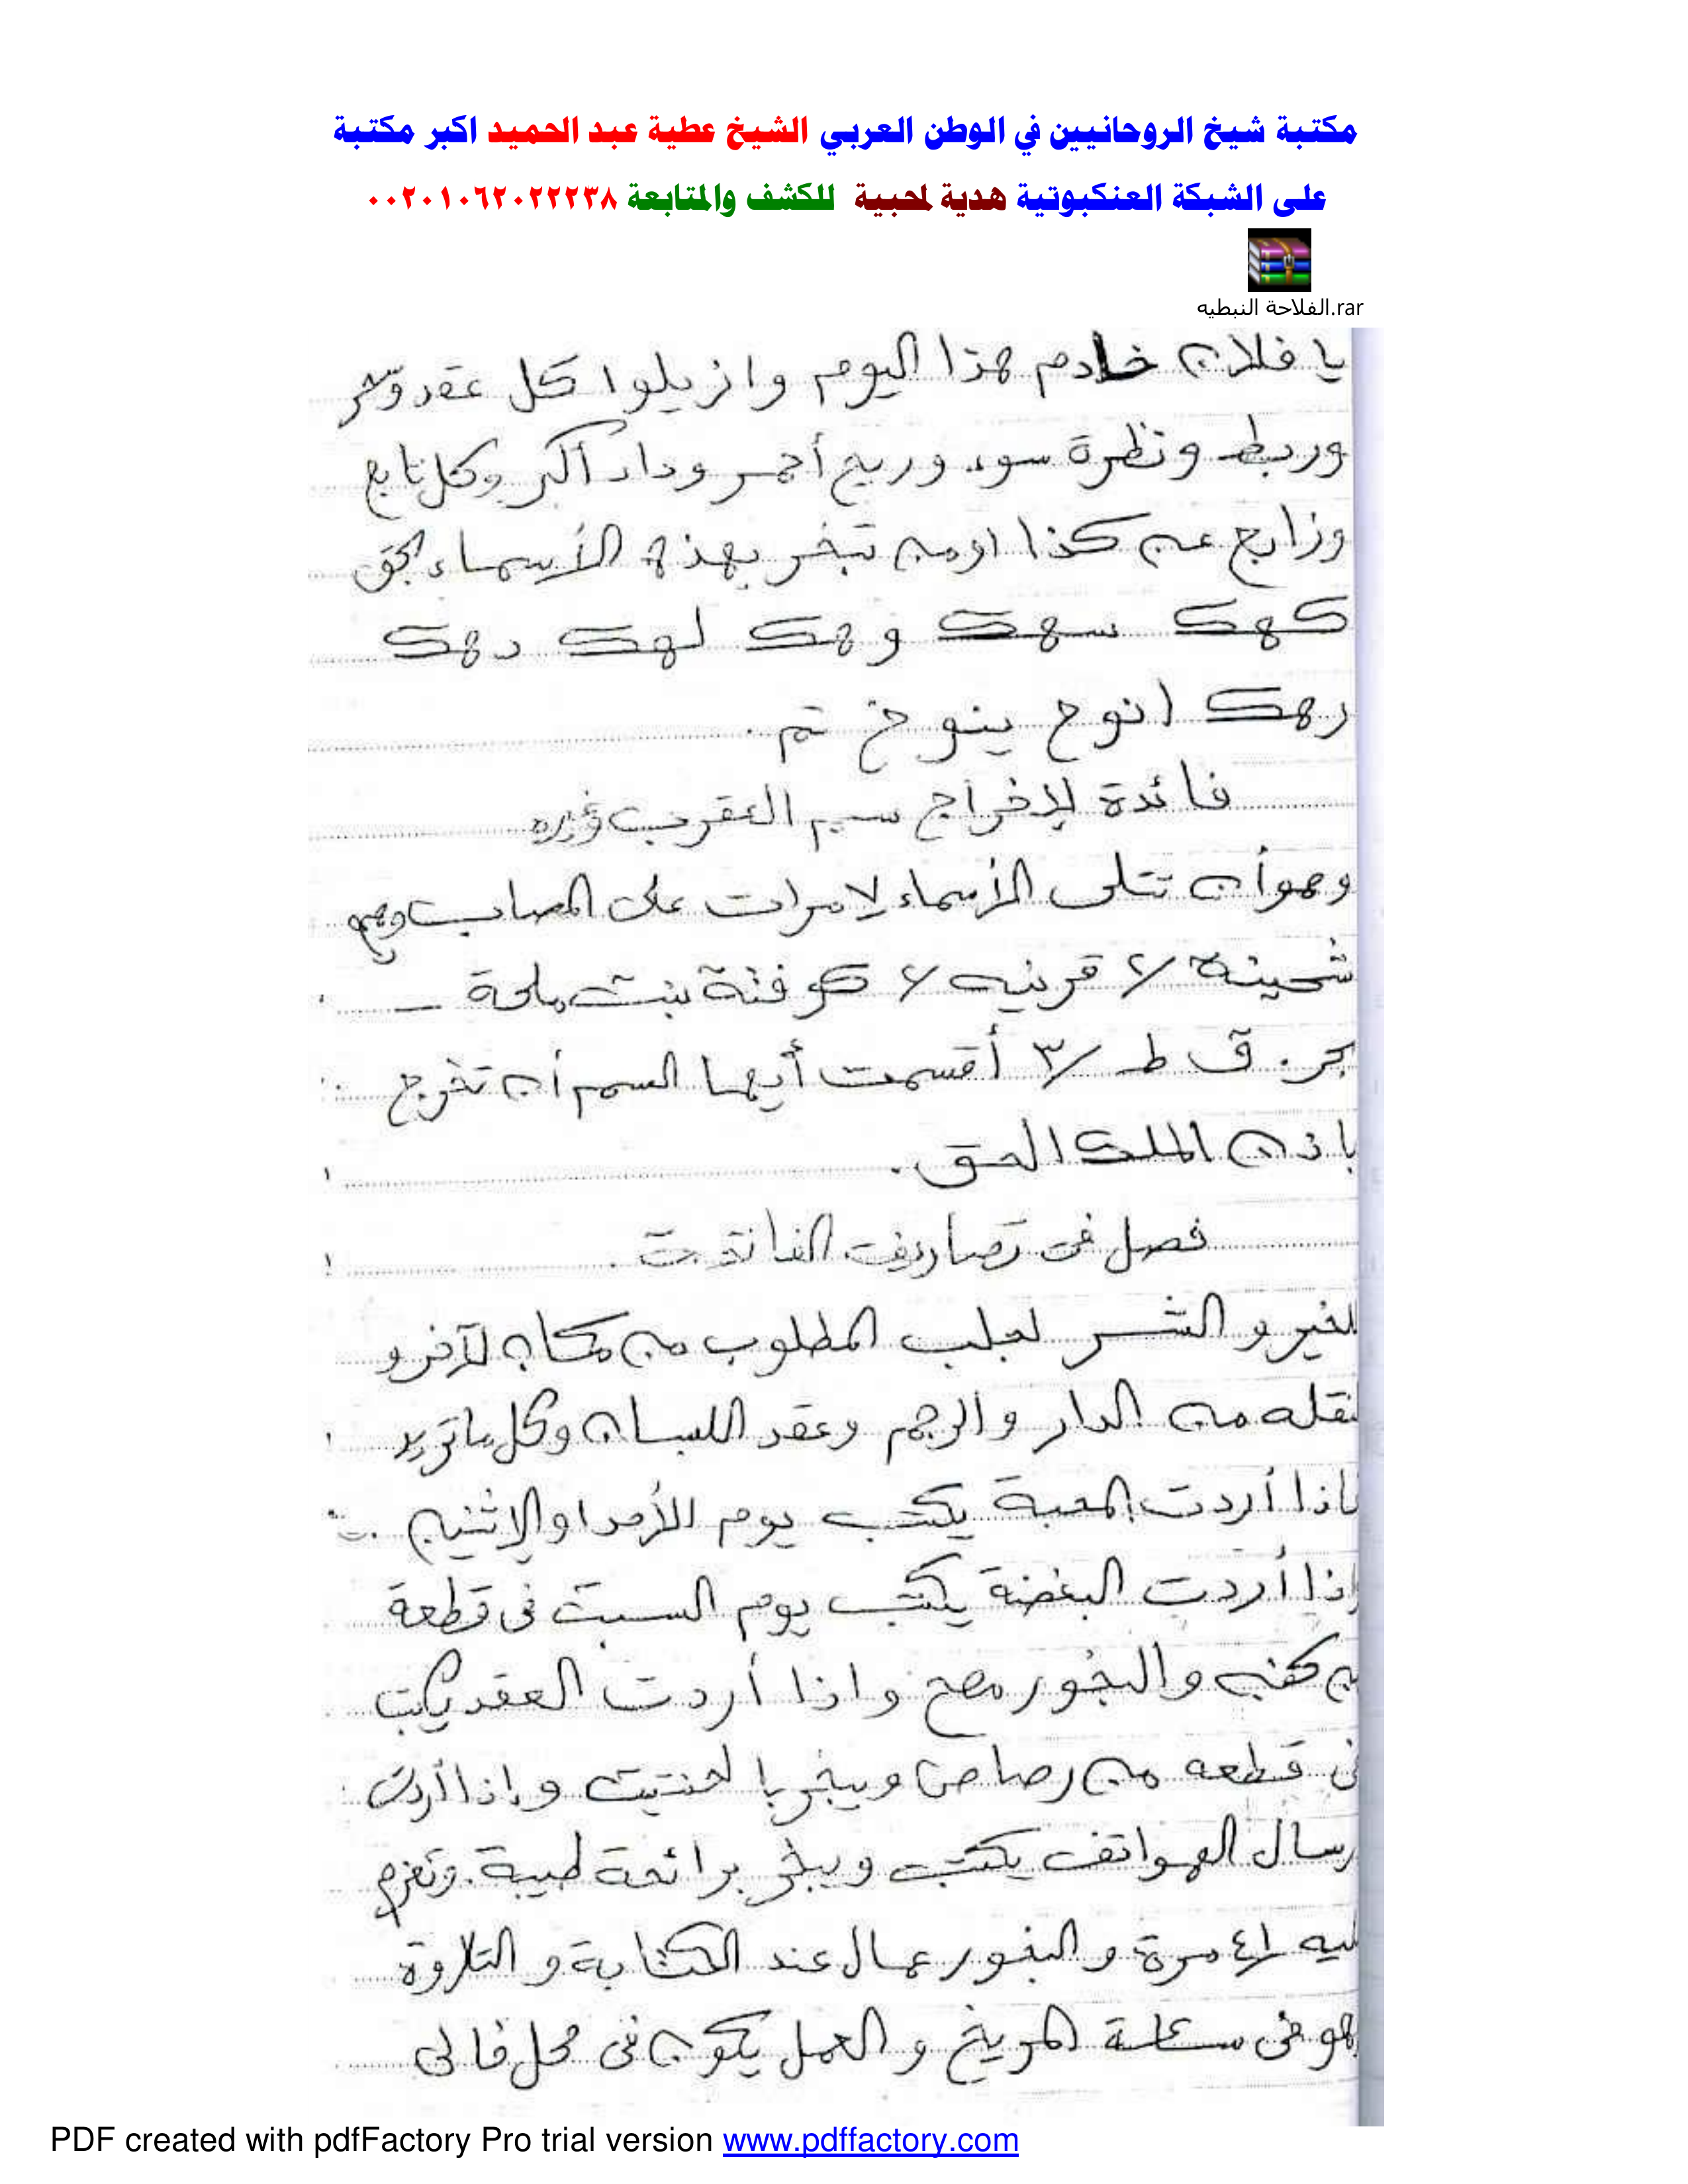 مكتبة شيخ الروحانيين في الوطن العربي الشيخ عطية عبد الحميد اكبر مكتبة
على الشبكة العنكبوتية هدية لمحبية للكشف والمتابعة ٠٠٢٠١٠٦٢٠٢٢٢٣٨
الفلاحة النبطيه.rar
يا فلان خادم هذا اليوم وازيلوا كل عقد
وربط ونظرة سوء وريح أحمر وداء أكبر وكل تابع
وزابع عن كذا اومن تبخر بهذه الأسماء بحق
كهك سهك وهك لهك دهك
رهك انوخ ينوخ تم.
فائدة لإخراج سم العقرب وغيره
وهو أن تتلى الأسماء ٧ مرات على المصاب وهم
شحينة /٢ قرينه /٢ كو فئة بنت ملحة
ق ط /٣ أقسمت أيها السم أن تخرج
باذن الملك الحق.
فصل فى تصاريف
للخير والشر لجلب المطلوب من مكان لآخر و
نقله من الدار والرجم وعقد اللسان وكل ما تريد
فاذا أردت المحبة يكتب يوم الأحد او الاثنين
إذا أردت البغضة يكتب يوم السبت فى قطعة
من كفن والبخور واذا أردت العقد يكتب
فى قطعه من رصاص ويبخر با لحنتيت واذا أردت
رسال الهواتف يكتب ويبخر برائحة طيبة. وتعزم
ليه ٤١ مرة والبخور عمال عند الكتابة و التلاوة
هو فى ساعة المريخ و العمل يكون فى محل خالى
PDF created with pdfFactory Pro trial version www.pdffactory.com